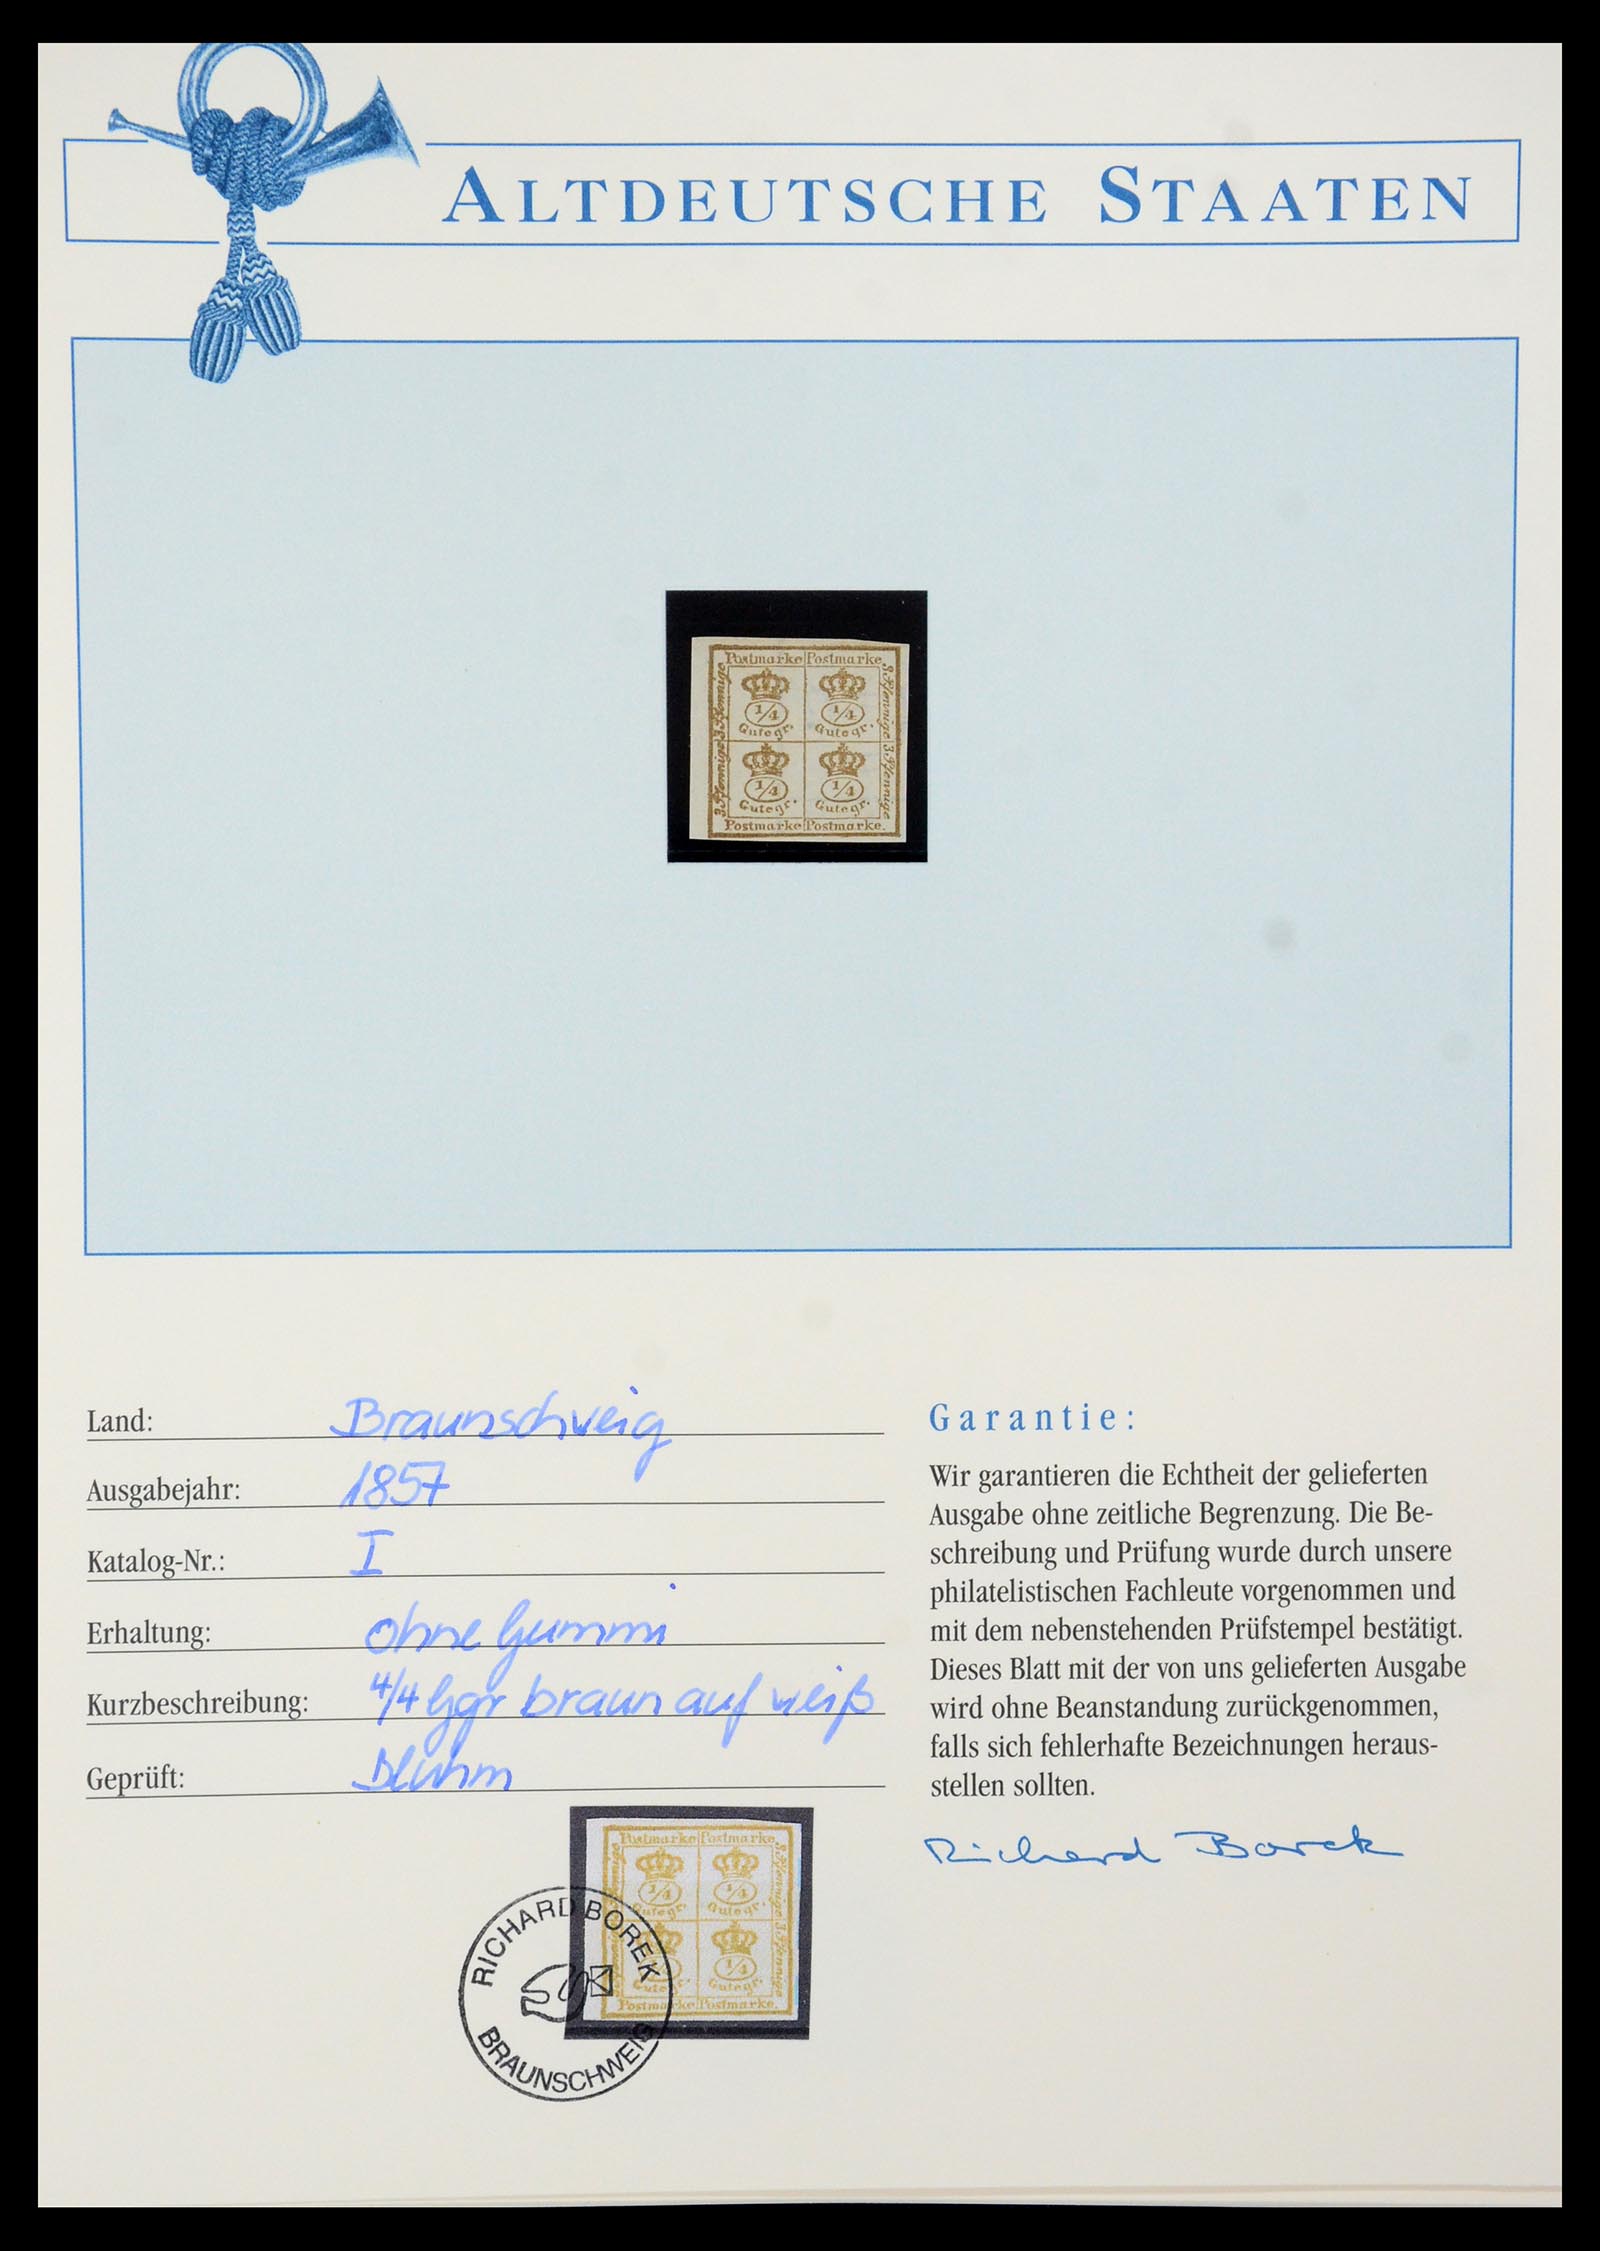 ALTDEUTSCHE STAATEN
Postmarke Postmarke.
3 Pfennige 3 Pfennige
3. Pfennige 3. Pfennige
1/4 1/4
Gutegr. Gutegr.
1/4 1/4
Gutegr. Gutegr.
Postmarke Postmarke.
Land: Braunschweig
Ausgabejahr: 1857
Katalog-Nr.: I
Erhaltung: ohne Gummi
Kurzbeschreibung: 4/4 Ggr braun auf weiß
Geprüft: Bluhm
Garantie:
Wir garantieren die Echtheit der gelieferten
Ausgabe ohne zeitliche Begrenzung. Die Be-
schreibung und Prüfung wurde durch unsere
philatelistischen Fachleute vorgenommen und
mit dem nebenstehenden Prüfstempel bestätigt.
Dieses Blatt mit der von uns gelieferten Ausgabe
wird ohne Beanstandung zurückgenommen,
falls sich fehlerhafte Bezeichnungen heraus-
stellen sollten.
Richard Borek
Postmarke Postmarke.
3. Pfennige 3. Pfennige
1/4 1/4
Gutegr. Gutegr.
1/4 1/4
Gutegr. Gutegr.
Postmarke Postmarke.
RICHARD BOREK
BRAUNSCHWEIG